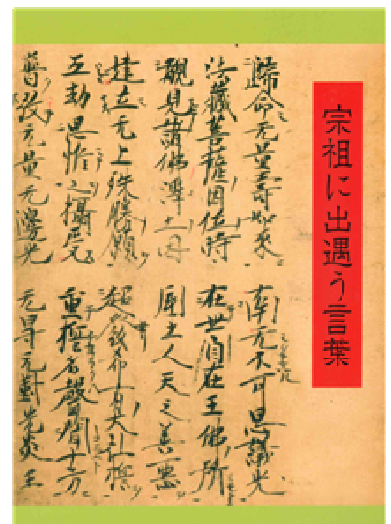 宗祖に出遇う言葉
歸命无量壽如來 南无不可思議光
法藏菩薩因位時 在世自在王佛所
覩見諸佛淨土因 國土人天之善惡
建立无上殊勝願 超發希有大弘誓
五劫思惟之攝受 重誓名聲聞十方
普放无量无邊光 无导无對光炎王